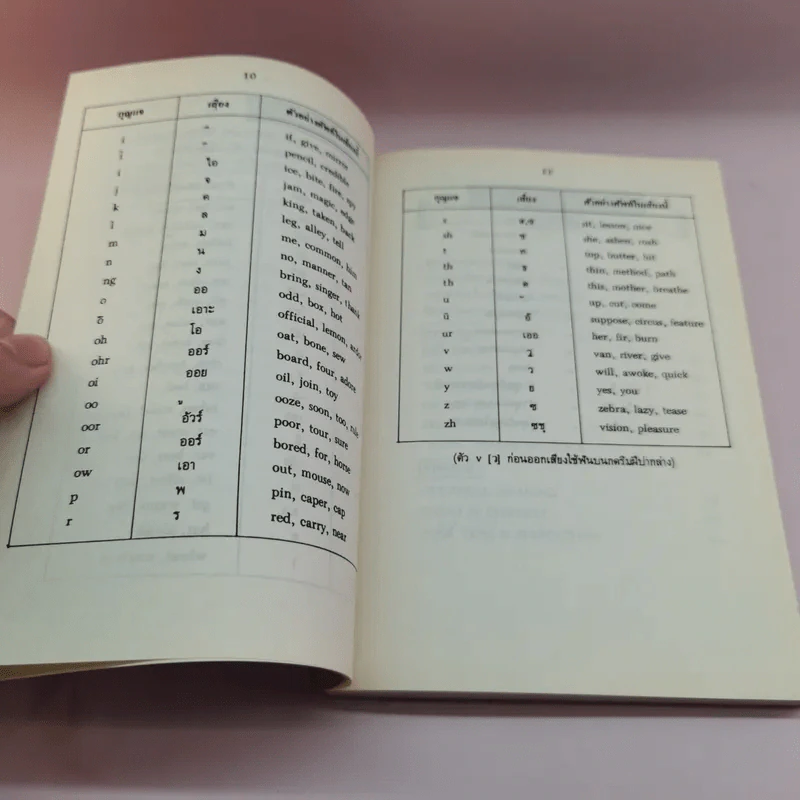 10
กุญแจ เสียง ตัวอย่างศัพท์ในเสียงนี้
if, give, mirror
pencil, credible
ไอ ice, bite, fire, spy
j จ jam, magic, edge
k ค king, taken, back
l ล leg, alley, tell
m ม me, common, him
n น no, manner, tan
ng ง bring, singer, thank
ออ odd, box, hot
เอาะ official, lemon,
oh โอ oat, bone, sew
ohr ออร์ board, four, adore
oi ออย oil, join, toy
oo ู ooze, soon, too, rule
oor อัวร์ poor, tour, sure
or ออร์ bored, for, horse
ow เอา out, mouse, now
p พ pin, caper, cap
r ร red, carry, near
11
กุญแจ เสียง ตัวอย่างศัพท์ในเสียงนี้
s sit, lesson, nice
sh ช she, ashen, rush
t ท top, butter, hit
th ธ thin, method, path
th ด this, mother, breathe
u up, cut, some
ŭ อั suppose, circus, feature
ur เออ her, fir, burn
v ว van, river, give
w ว will, awoke, quick
y ย yes, you
z ซ zebra, lazy, tease
zh ซชุ vision, pleasure
(ตัว v [ว] ก่อนออกเสียงใช้ฟันบนกดริมฝีปากล่าง)